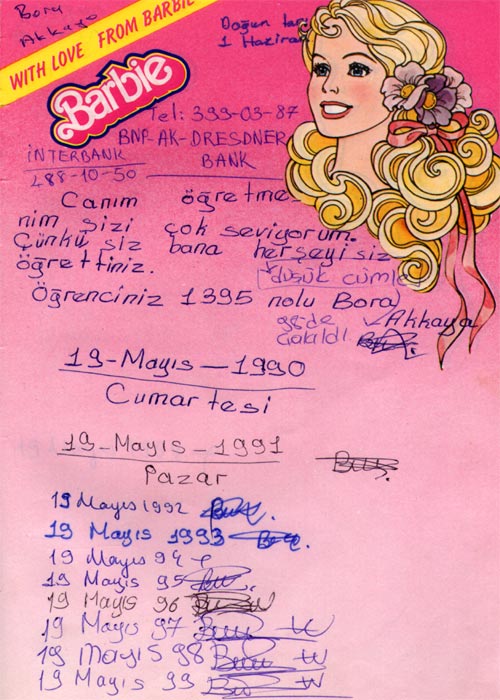 Bora
Akkaya
Doğun tari
1 Haziran
WITH LOVE FROM BARBIE
Barbie
Tel: 399-03-87
BNP-AK-DRESDNER
BANK
İNTERBANK
488-10-50
Canım öğretme
nim sizi çok seviyorum.
Çünkü siz bana herşeyi siz
öğrettiniz.
(düşük cümle)
Öğrenciniz 1395 nolu Bora
Akkaya
98-de
çakıldı
19-Mayıs-1990
Cumartesi
19-Mayıs-1991
Pazar
19 Mayıs 1992
19 Mayıs 1993
19 Mayıs 94
19 Mayıs 95
19 Mayıs 96
19 Mayıs 97
19 Mayıs 98
19 Mayıs 99